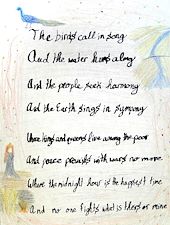 The birds call in song
And the water hums along
And the people seek harmony
And the Earth sings in sympony
Where kings and queens live among the poor
And peace prevails with wars no more
Where the midnight hour is the happiest time
And no one fights what is theirs or mine